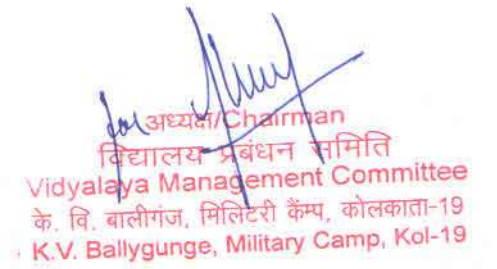 for
अध्यक्ष/Chairman
विद्यालय प्रबंधन समिति
Vidyalaya Management Committee
के. वि. बालीगंज, मिलिटरी कैंम्प, कोलकाता-19
K.V. Ballygunge, Military Camp, Kol-19